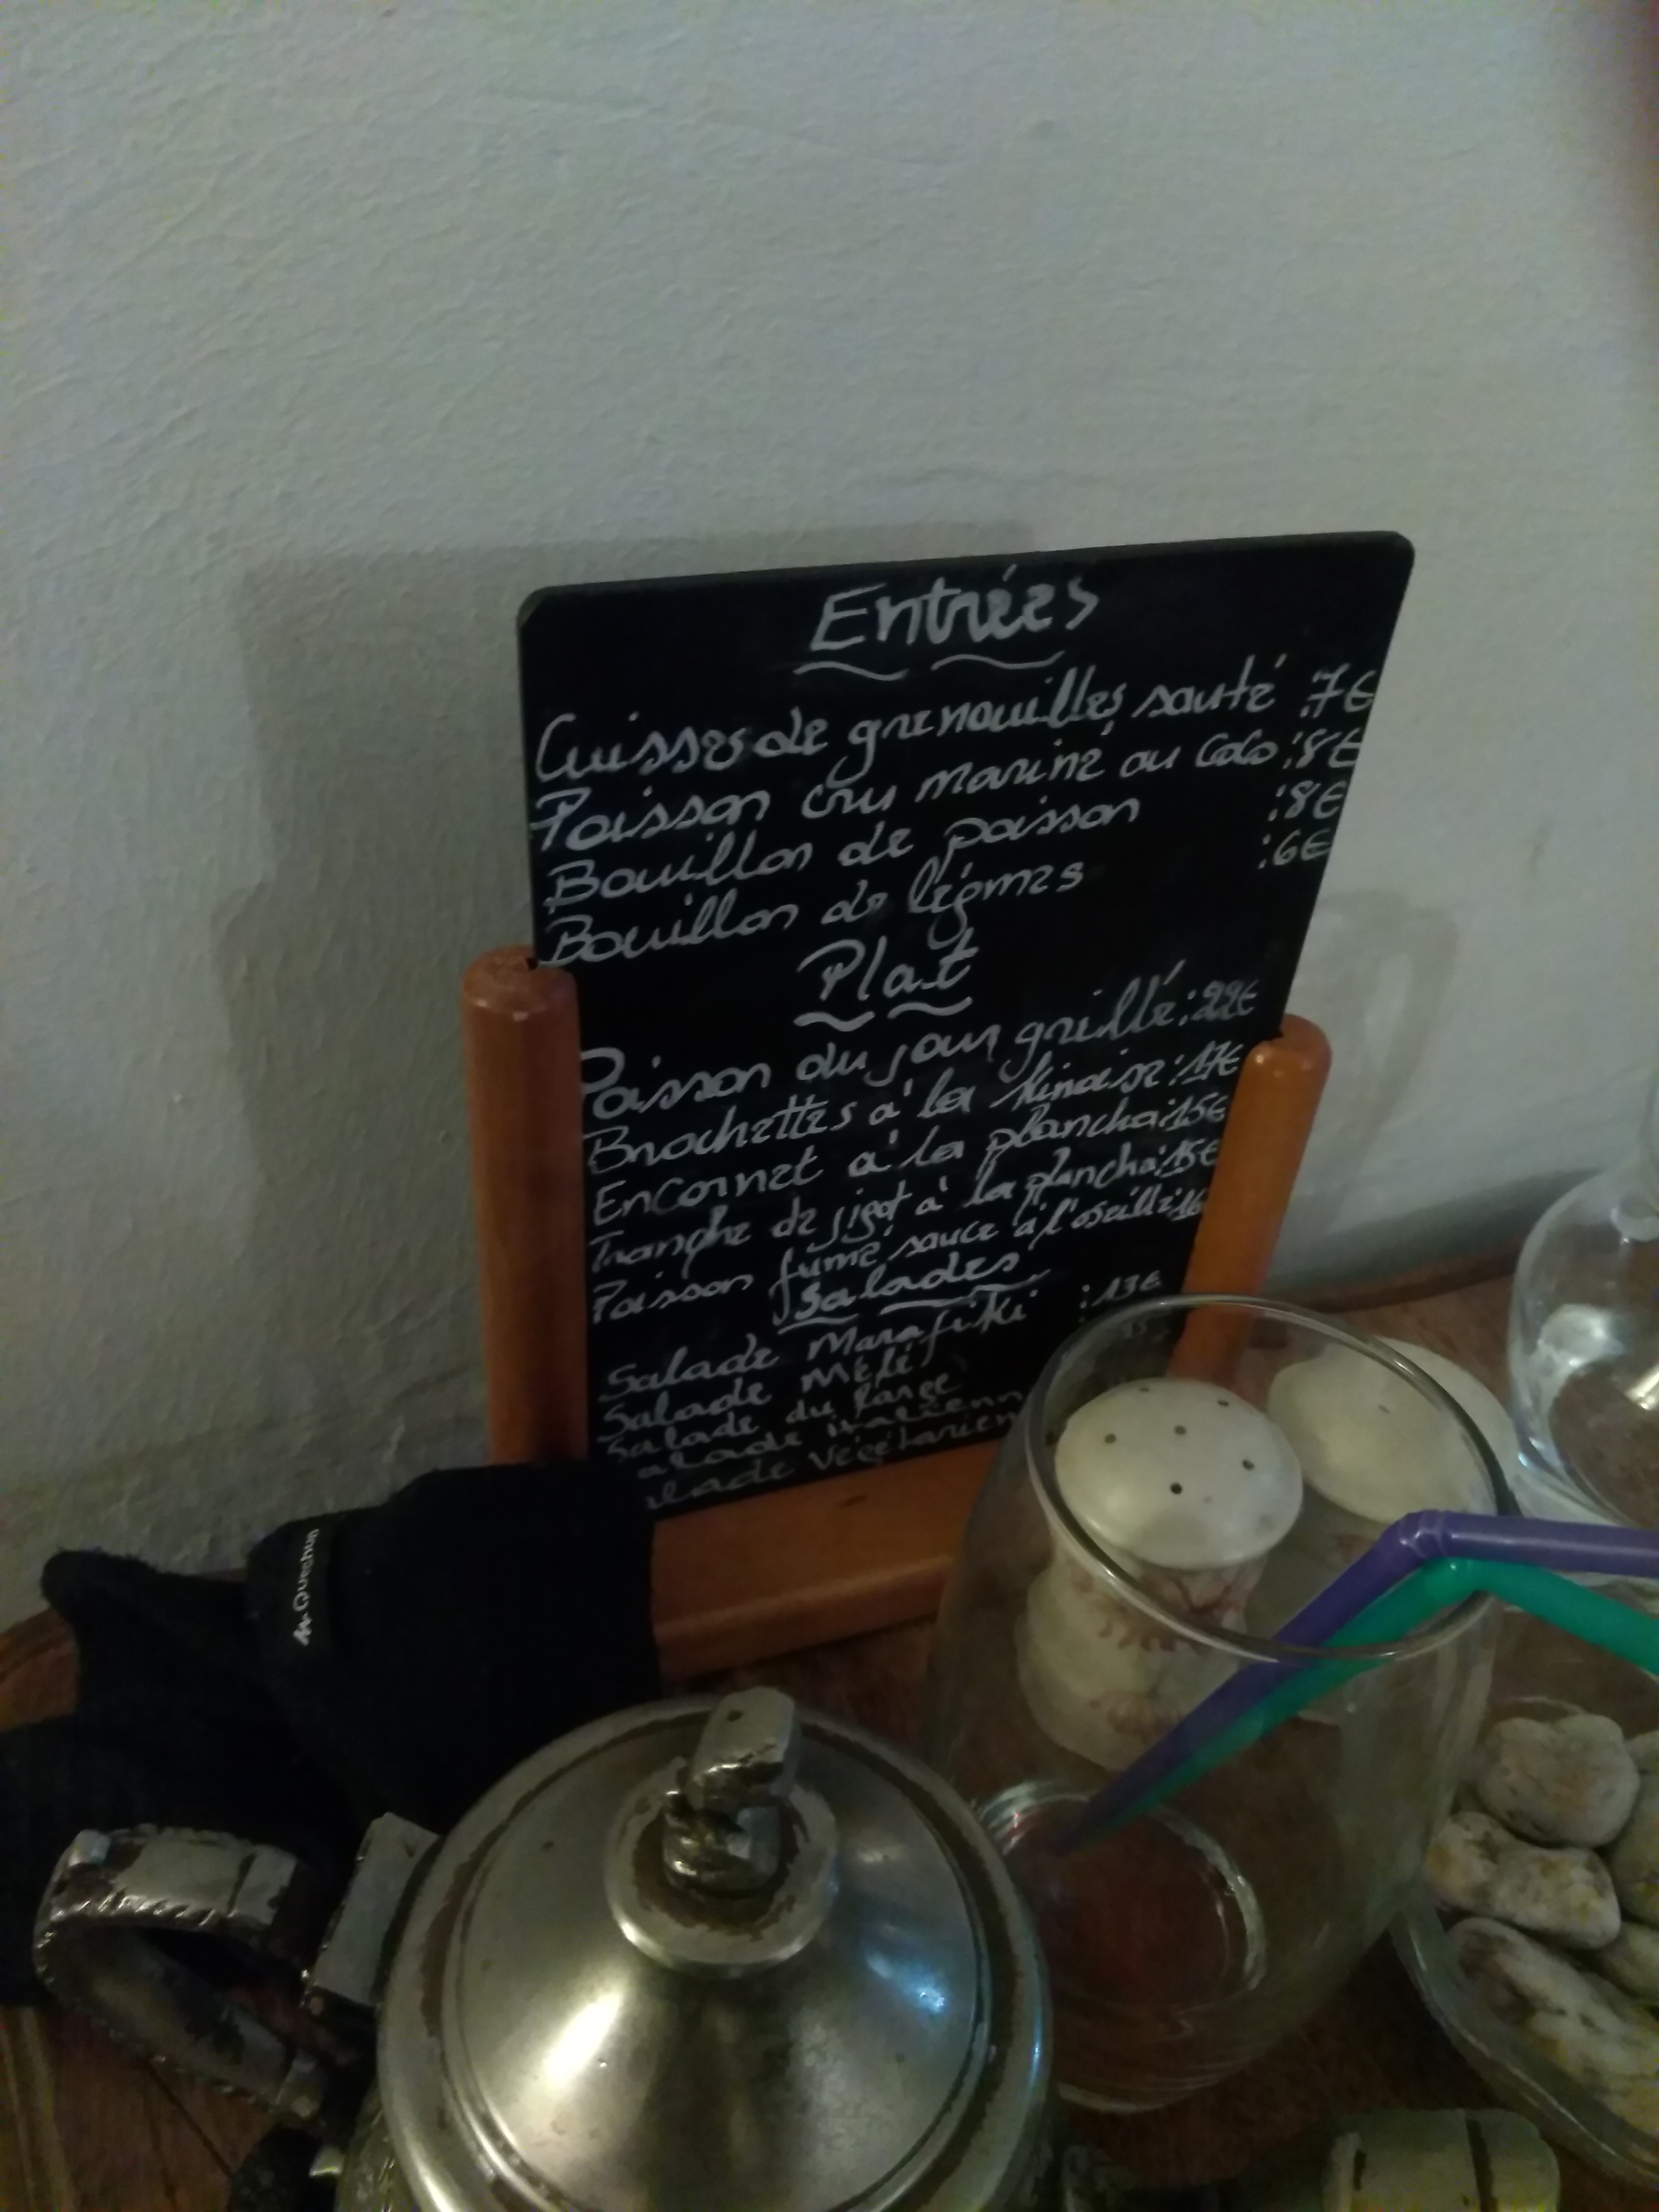 Entrées
Cuisses de grenouilles sauté :7€
Poisson cru mariné au Coco :8€
Bouillon de poisson :8€
Bouillon de légmes :6€
Plat
Poisson du jour grillé :22€
Brochettes à la :17€
Encornet à la plancha :15€
Tranche de gigot à la plancha :15€
Poisson fumé sauce à l'oseille :16
Salades
Salade Marafiki :13€
Salade
Salade du
Salade italienn
Salade végétarien
Quechua